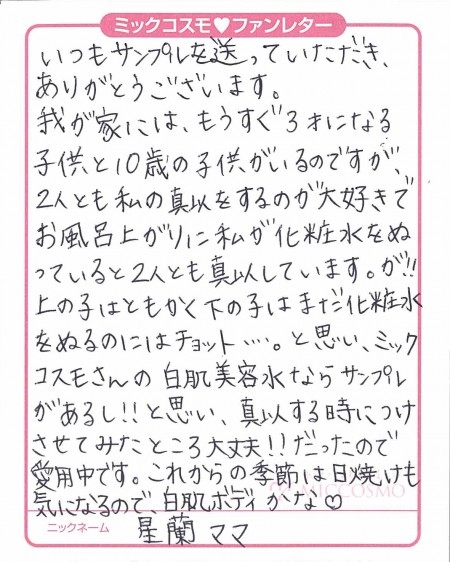 ミックコスモ♥ファンレター
いつもサンプルを送っていただき、
ありがとうございます。
我が家には、もうすぐ3才になる
子供と10歳の子供がいるのですが、
2人とも私の真似をするのが大好きで
お風呂上がりに私が化粧水をぬ
っていると2人とも真似しています。が!!
上の子はともかく下の子はまだ化粧水
をぬるのにはチョット….。と思い、ミック
コスモさんの白肌美容水ならサンプル
があるし!!と思い、真似する時につけ
させてみたところ大丈夫!!だったので
愛用中です。これからの季節は日焼けも
気になるので、白肌ボディかな♡
MICCOSMO
ニックネーム 星蘭ママ